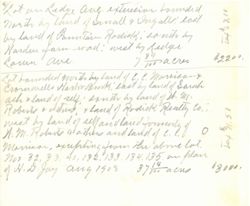 Lot on Ledge Ave extension bounded
North by land of Small & Douglas, east
by land of Fountain Rodick, south by
Harden farm road; west by Ledge
Lawn Ave 7 acres $2200.
Lot bounded North by land of L. E. Morrison &
Cromwell Harbor Brook, East by land of Sarah
Ash & land of self, South by land of H. M.
Roberts & others, & land of Rodick Realty Co.
West by land of self and land formerly of
H. M. Roberts & others and land of L. E.
Morrison, excepting from the above lot
Nos 32, 33, 41, 132, 133, 134, 135 on plan
of H. L. Jay Aug 1903 37 14/100 acres $3000.